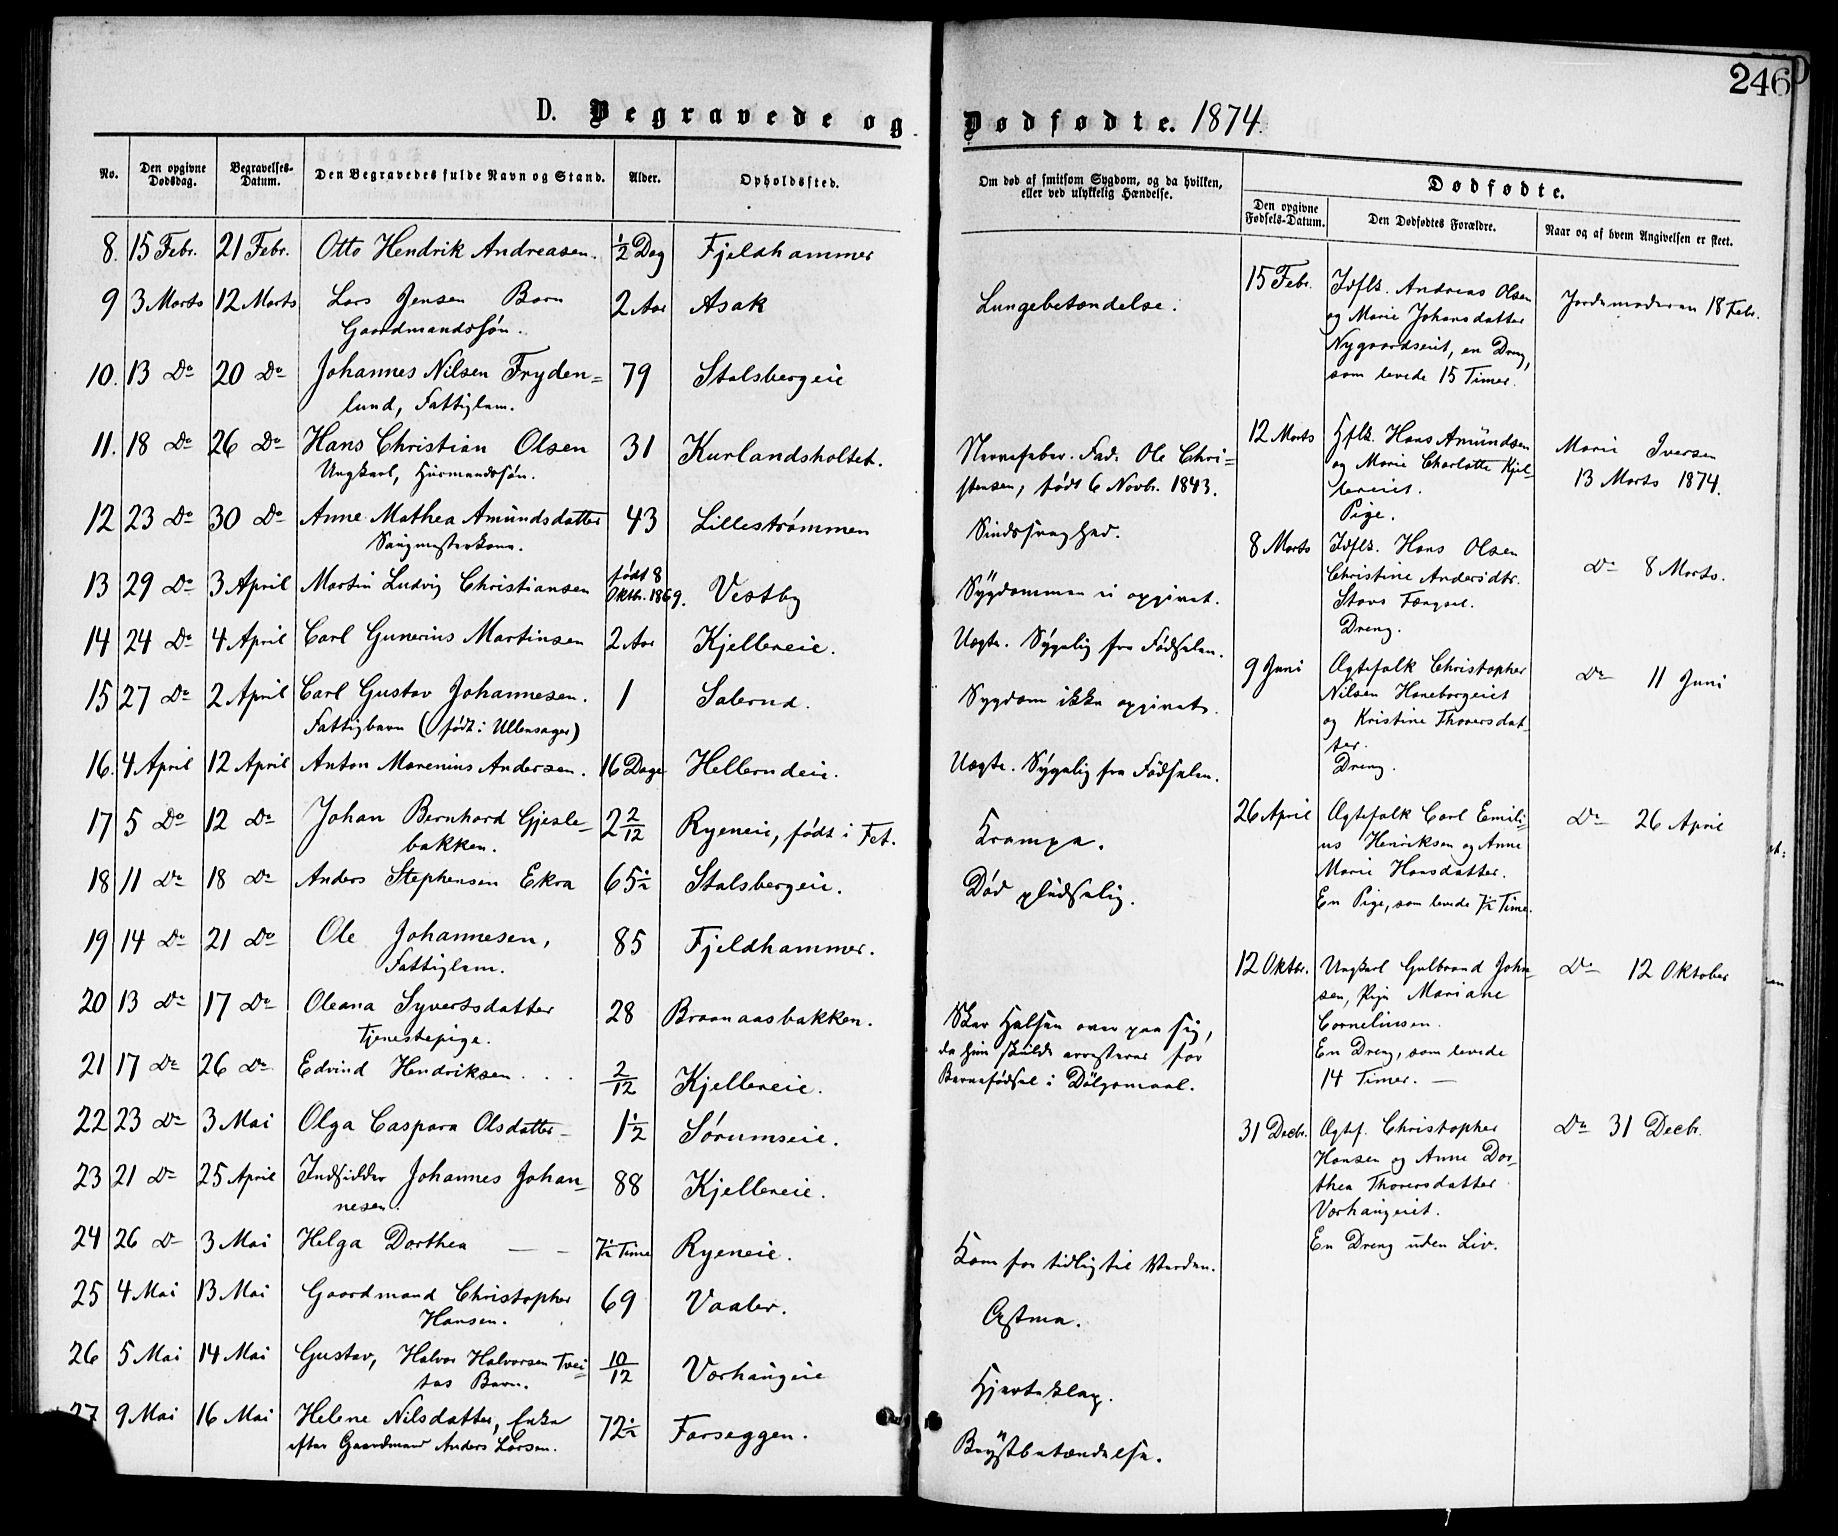 246
D. Begravede og
Dødfødte. 1874.
No.
Den opgivne Dødsdag.
Begravelses-Datum.
Den Begravedes fulde Navn og Stand.
Alder.
Opholdssted.
8. 15 Febr. 21 Febr. Otto Hendrik Andreasen. ½ Dag Fjeldhammer
9 3 Marts 12 Marts Lars Jensen Barn 2 Aar Asak
Gaardmandssøn.
10. 13 Do 20 Do Johannes Nilsen Fryden= 79 Stalsbergeie
lund, Fattiglem.
11. 18 Do 26 Do Hans Christian Olsen 31 Kurlandsholtet.
Ungkarl, Huusmandssøn.
12 23 Do 30 Do Anne Mathea Amundsdatter 43 Lillestrømmen
Saugmesterkone.
13 29 Do 3 April Martin Ludvig Christiansen født 8 Oktbr. 1869. Vestby
14 24 Do 4 April Carl Gunerius Martinsen 2 Aar Kjellereie.
15 27 Do 2 April Carl Gustav Johannesen. 1 Salerud.
Fattigbarn (født i Ullensager)
16. 4 April 12 April Anton Marenius Andersen. 16 Dage Hellerudeie.
17 5 Do 12 Do Johan Bernhard Gjesle- 2 2/12 Ryeneie, født i Fet.
bakken.
18 11 Do 18 Do Anders Stephensen Ekra 65½ Stalsbergeie.
19 14 Do 21 Do Ole Johannesen, 85 Fjeldhammer.
Fattiglem.
20 13 Do 17 Do Oleana Syvertsdatter 28 Braanaasbakken.
Tjenestepige.
21 17 Do 26 Do Edvind Hendriksen . . . 2/12 Kjellereie.
22 23 Do 3 Mai Olga Caspara Olsdatter 1½ Sørumseie.
23 21 Do 25 April Indsidder Johannes Johan- 88 Kjellereie.
nesen.
24 26 Do 3 Mai Helga Dorthea — — ½ Time Ryeneie.
25 4 Mai 13 Mai Gaardmand Christopher 69 Vaaler.
Hansen.
26 5 Mai 14 Mai Gustav, Halvor Halvorsen Tvei- 10/12 Vorhaugeie
tas Barn.
27 9 Mai 16 Mai Helene Nilsdatter, Enke 72½ Farseggen.
efter Gaardmand Anders Larsen.
Om død af smitsom Sygdom, og da hvilken,
eller ved ulykkelig Hændelse.
Lungebetændelse.
Nervefeber. Fad. Ole Chri=
stensen, født 6 Novbr. 1843.
Sindssvaghed.
Sygdommen ei opgivet.
Uægte. Sygelig fra Fødselen.
Sygdom ikke opgivet.
Uægte. Sygelig fra Fødselen.
Krampe.
Død pludselig.
Skar Halsen over paa sig,
da hun skulde arresteres for
Barnefødsel i Dølgsmaal.
Kom for tidlig til Verden.
Astma.
Hjerteslag.
Brystbetændelse.
Dødfødte.
Den opgivne Fødsels-Datum.
Den Dødfødtes Forældre.
Naar og af hvem Angivelsen er skeet.
15 Febr. Idflk. Andreas Olsen Jordemoderen 18 Febr.
og Marie Johansdatter
Nygaardseiet, en Dreng,
som levede 15 Timer.
12 Marts Hflk. Hans Amundsen Marie Iversen
og Marie Charlotte Kjel- 13 Marts 1874.
lereiet.
Pige.
8 Marts Idflk. Hans Olsen Do 8 Marts.
Christine Andersdtr.
Stavs Fængsel.
Dreng.
9 Juni Ægtefolk Christopher Do 11 Juni
Nilsen Haneborgeiet
og Kristine Thoresdat-
ter.
Dreng.
26 April Ægtefolk Carl Emili- Do 26 April
us Henriksen og Anne
Marie Hansdatter.
En Pige, som levede ½ Time.
12 Oktbr. Ungkarl Gulbrand John- Do 12 Oktober
sen, Pige Mariane
Corneliusen.
En Dreng, som levede
14 Timer. —
31 Decbr. Ægtf. Christopher Do 31 Decbr.
Hansen og Anne Dor-
thea Thoresdatter
Vorhaugeiet.
En Dreng uden Liv.